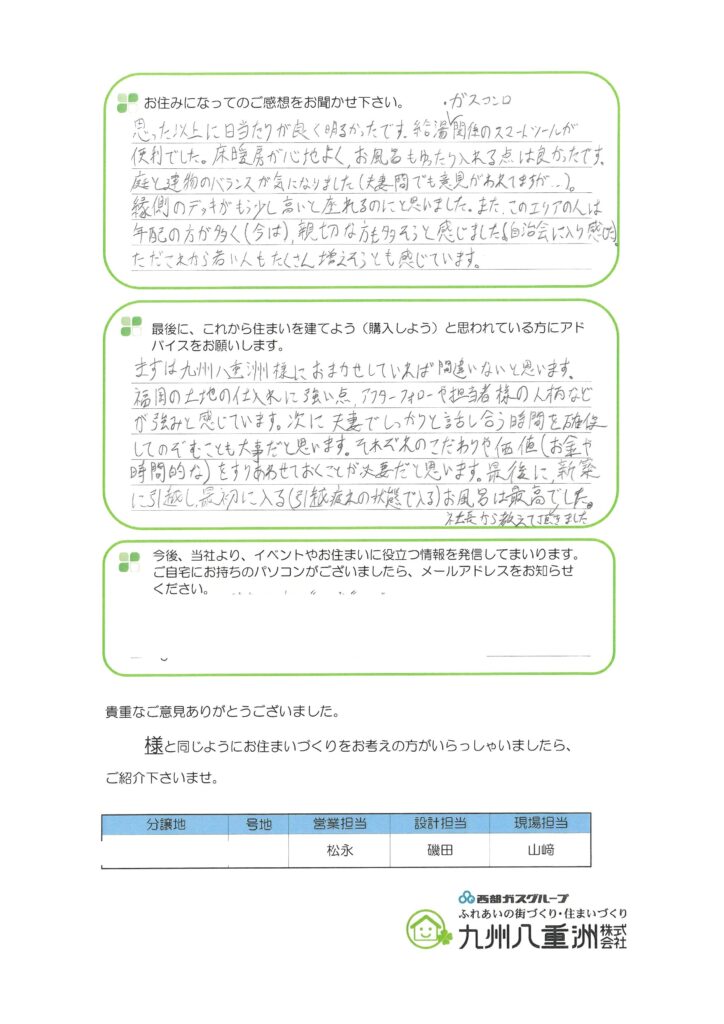 お住みになってのご感想をお聞かせ下さい。
・ガスコンロ
思った以上に日当たりが良く明るかったです。給湯関係のスマートツールが
便利でした。床暖房が心地よく、お風呂もゆったり入れる点は良かったです。
庭と建物のバランスが気になりました(夫妻間でも意見がわれてますが…)。
縁側のデッキがもう少し高いと座れるのにと思いました。また、このエリアの人は
年配の方が多く(今は)、親切な方も多そうと感じました(自治会に入り感じた)。
ただこれから若い人もたくさん増えそうとも感じています。
最後に、これから住まいを建てよう(購入しよう)と思われている方にアド
バイスをお願いします。
まずは九州八重洲様におまかせしていれば間違いないと思います。
福岡の土地の仕入れに強い点、アフターフォローや担当者様の人柄など
が強みと感じています。次に夫妻でしっかりと話し合う時間を確保
してのぞむことも大事だと思います。それぞれのこだわりや価値(お金や
時間的な)をすりあわせておくことが必要だと思います。最後に、新築
に引越し、最初に入る(引越疲れの状態で入る)お風呂は最高でした。
社長から教えて頂きました
今後、当社より、イベントやお住まいに役立つ情報を発信してまいります。
ご自宅にお持ちのパソコンがございましたら、メールアドレスをお知らせ
ください。
貴重なご意見ありがとうございました。
様と同じようにお住まいづくりをお考えの方がいらっしゃいましたら、
ご紹介下さいませ。
分譲地 号地 営業担当 設計担当 現場担当
松永 磯田 山﨑
西部ガスグループ
ふれあいの街づくり・住まいづくり
九州八重洲株式会社